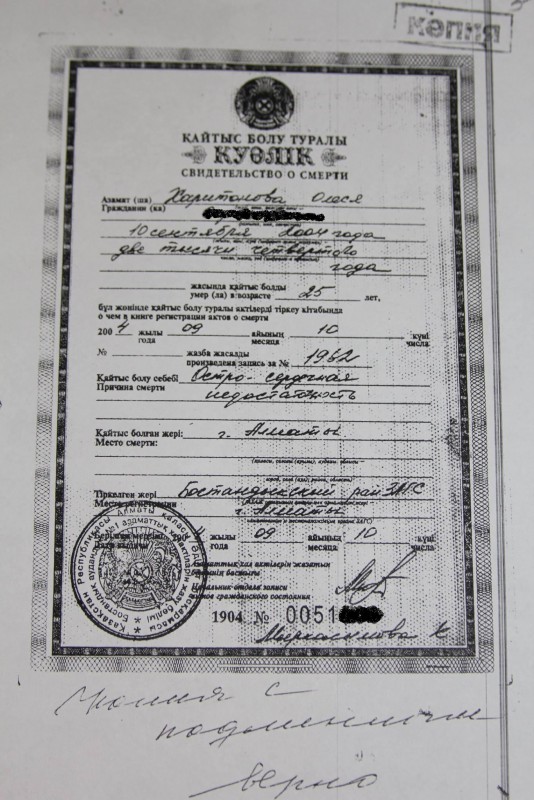 КӨПІЯ
ҚАЙТЫС БОЛУ ТУРАЛЫ
КУӘЛІК
СВИДЕТЕЛЬСТВО О СМЕРТИ
Азамат (ша) Харитонова Олеся
Гражданин (ка)
10 сентября 2004 года
две тысячи четвертого
года
жасында қайтыс болды
умер (ла) в возрасте 25 лет,
бұл жөнінде қайтыс болу туралы актілерді тіркеу кітабында
о чем в книге регистрации актов о смерти
200 4 жылы 09 айының 10 күні
года месяца числа
№ жазба жасалды
произведена запись за № 1962
Қайтыс болу себебі Остро-сердечная
Причина смерти недостатность
Қайтыс болған жері: г. Алматы
Место смерти:
Тіркелген жері Бостандыкский райЗАГС
Место регистрации г. Алматы
Берілген мерзімі 200 4 жылы 09 айының 10 күні
Дата выдачи года месяца числа
Азаматтық хал актілерін жазатын
бөлімінің бастығы
Начальник отдела записи
актов гражданского состояния
1904 № 0051
Мыркасимова К
Копия с
подлинником
верно